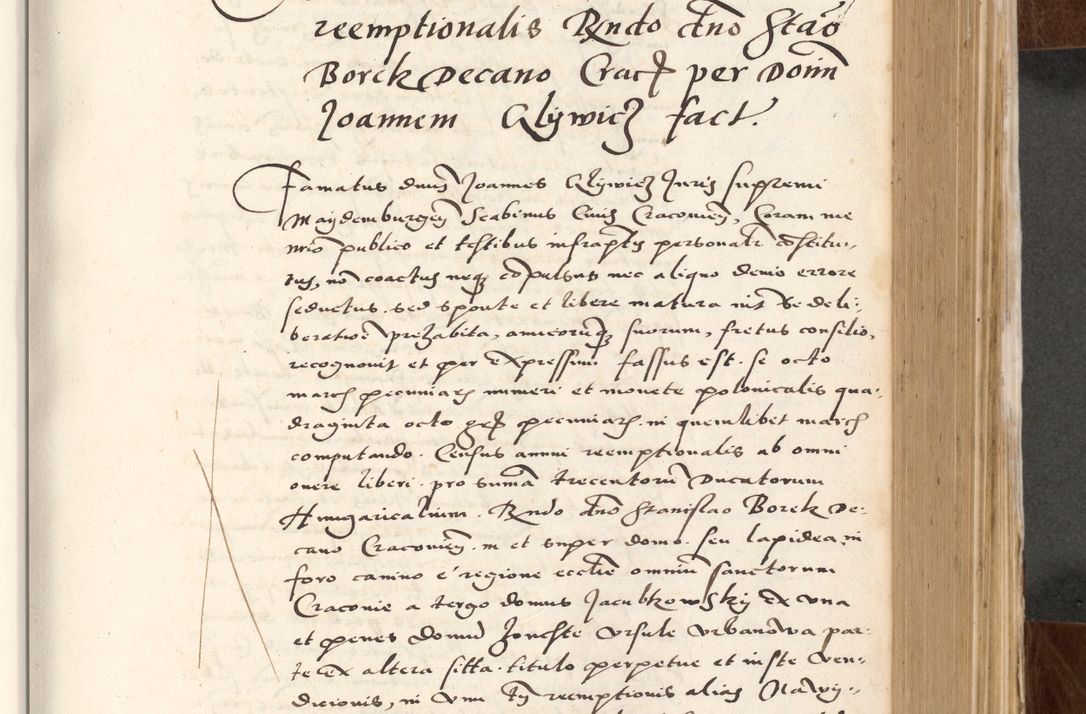 reemptionalis Rndo dno Stao
Borek Decano Crac per Domin
Joannem Glywicz fact.
Famatus dnus Joannes Glywicz Juris supremi
Maydemburgen Scabinus Civis Cracovien, Coram me
nrio publico et testibus infraptis personalr constitu-
tus, no coactus neq compulsus nec aliquo demo errore
seductus. sed sponte et libere matura int se deli-
beratioe prehabita, amicoruq suorum, fretus consilio,
recognovit et per expressum fassus est. se octo
march pecuniae numeri et monete polonicalis qua-
draginta octo grs pecuniar. in quemlibet march
computando. Census annui reemptionalis ab omni
onere liberi. pro suma trecentoru Ducatorum
Hungaricalium. Rndo dno Stanislao Borek De-
cano Cracovien. in et super domo. seu lapidea in
foro canino e regione ecclie omniu sanctorum
Cracovie a tergo domus Jacubkowsky ex una
et penes domu Ursule Urbanowa par-
te ex altera sitta. titulo perpetue et iuste ven-
dicionis, in vim tn reemptionis alias Nawy-